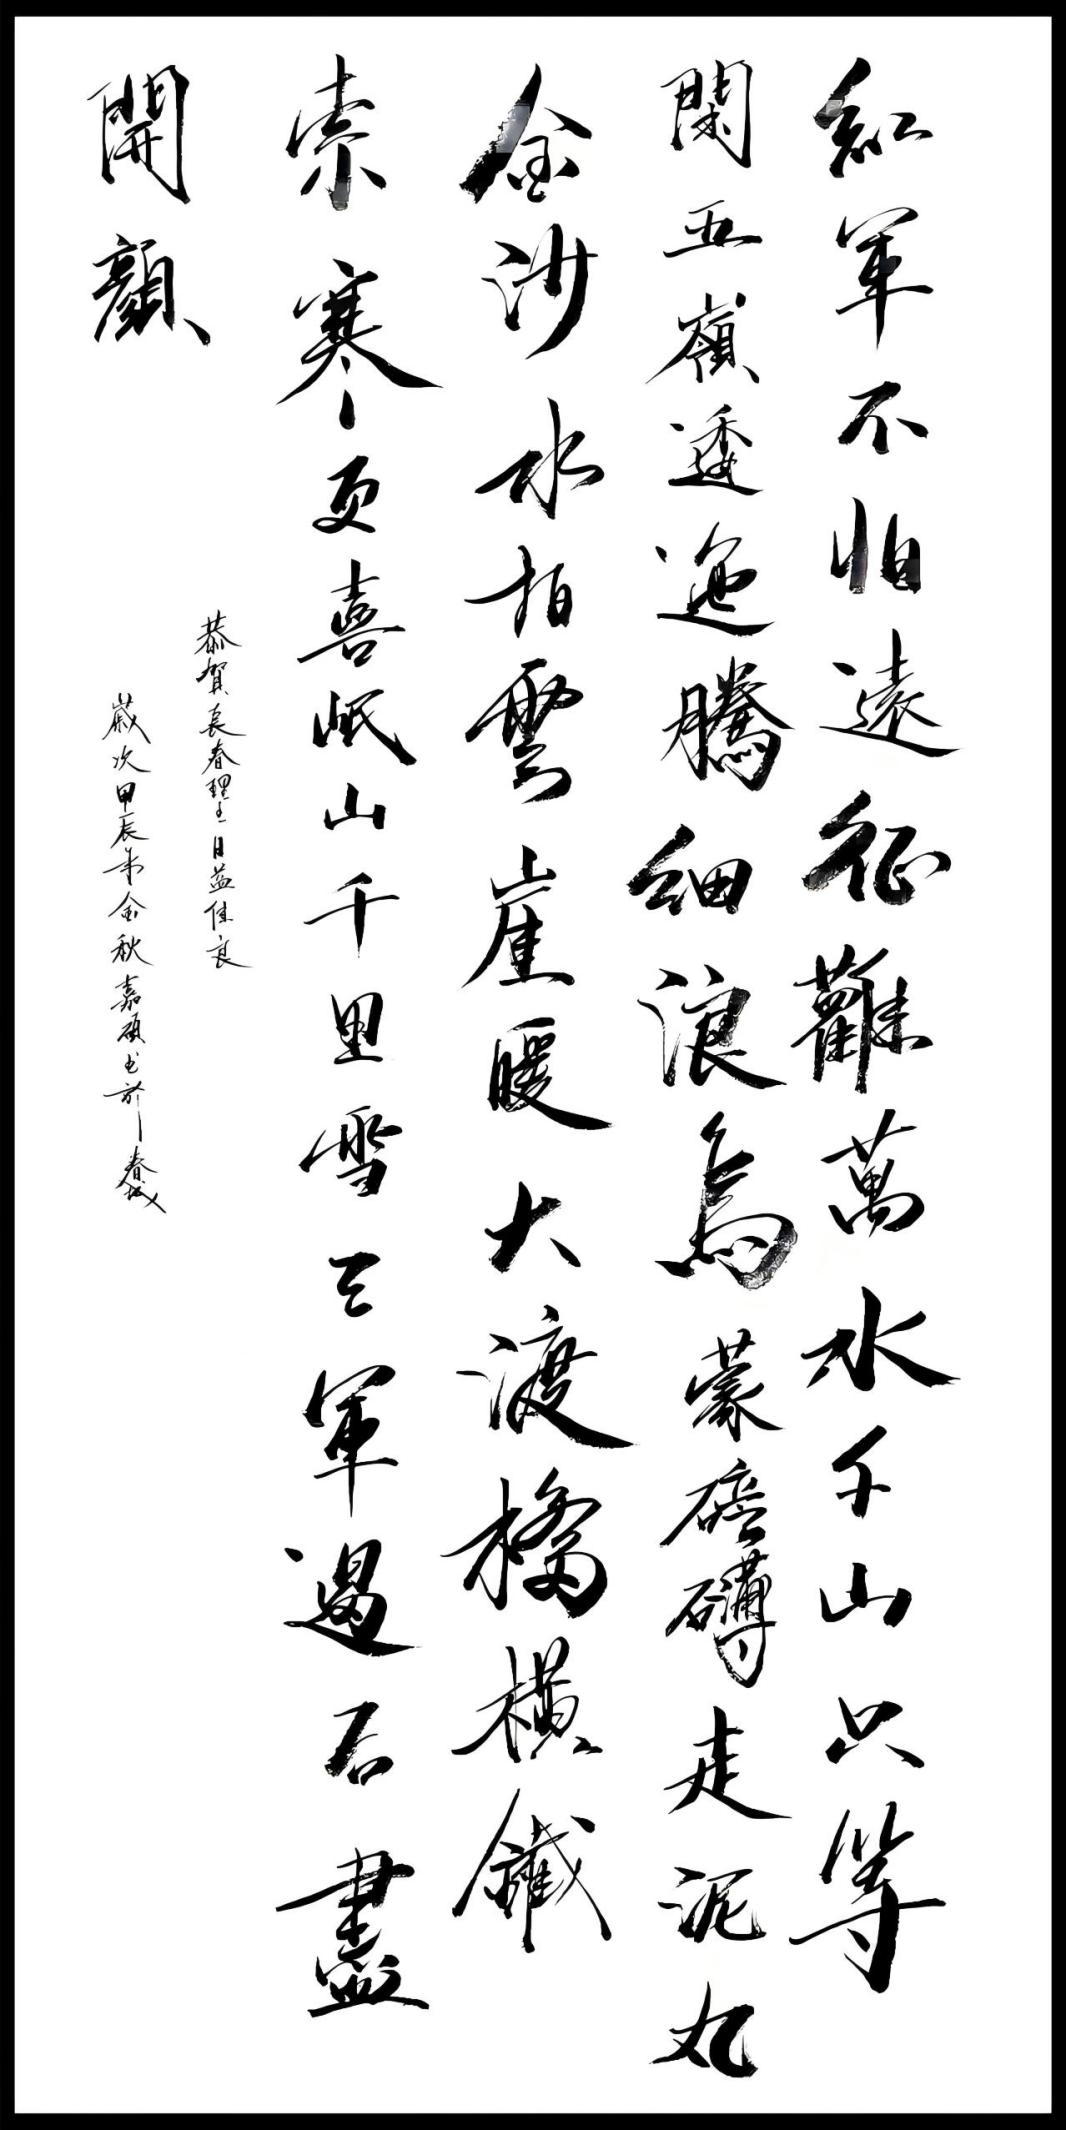 紅軍不怕遠征難萬水千山只等
閑五嶺逶迤騰細浪烏蒙磅礴走泥丸
金沙水拍雲崖暖大渡橋橫鐵
索寒更喜岷山千里雪三軍過后盡
開顏
恭賀長春理工日益佳良
歲次甲辰年金秋嘉碩書於春城